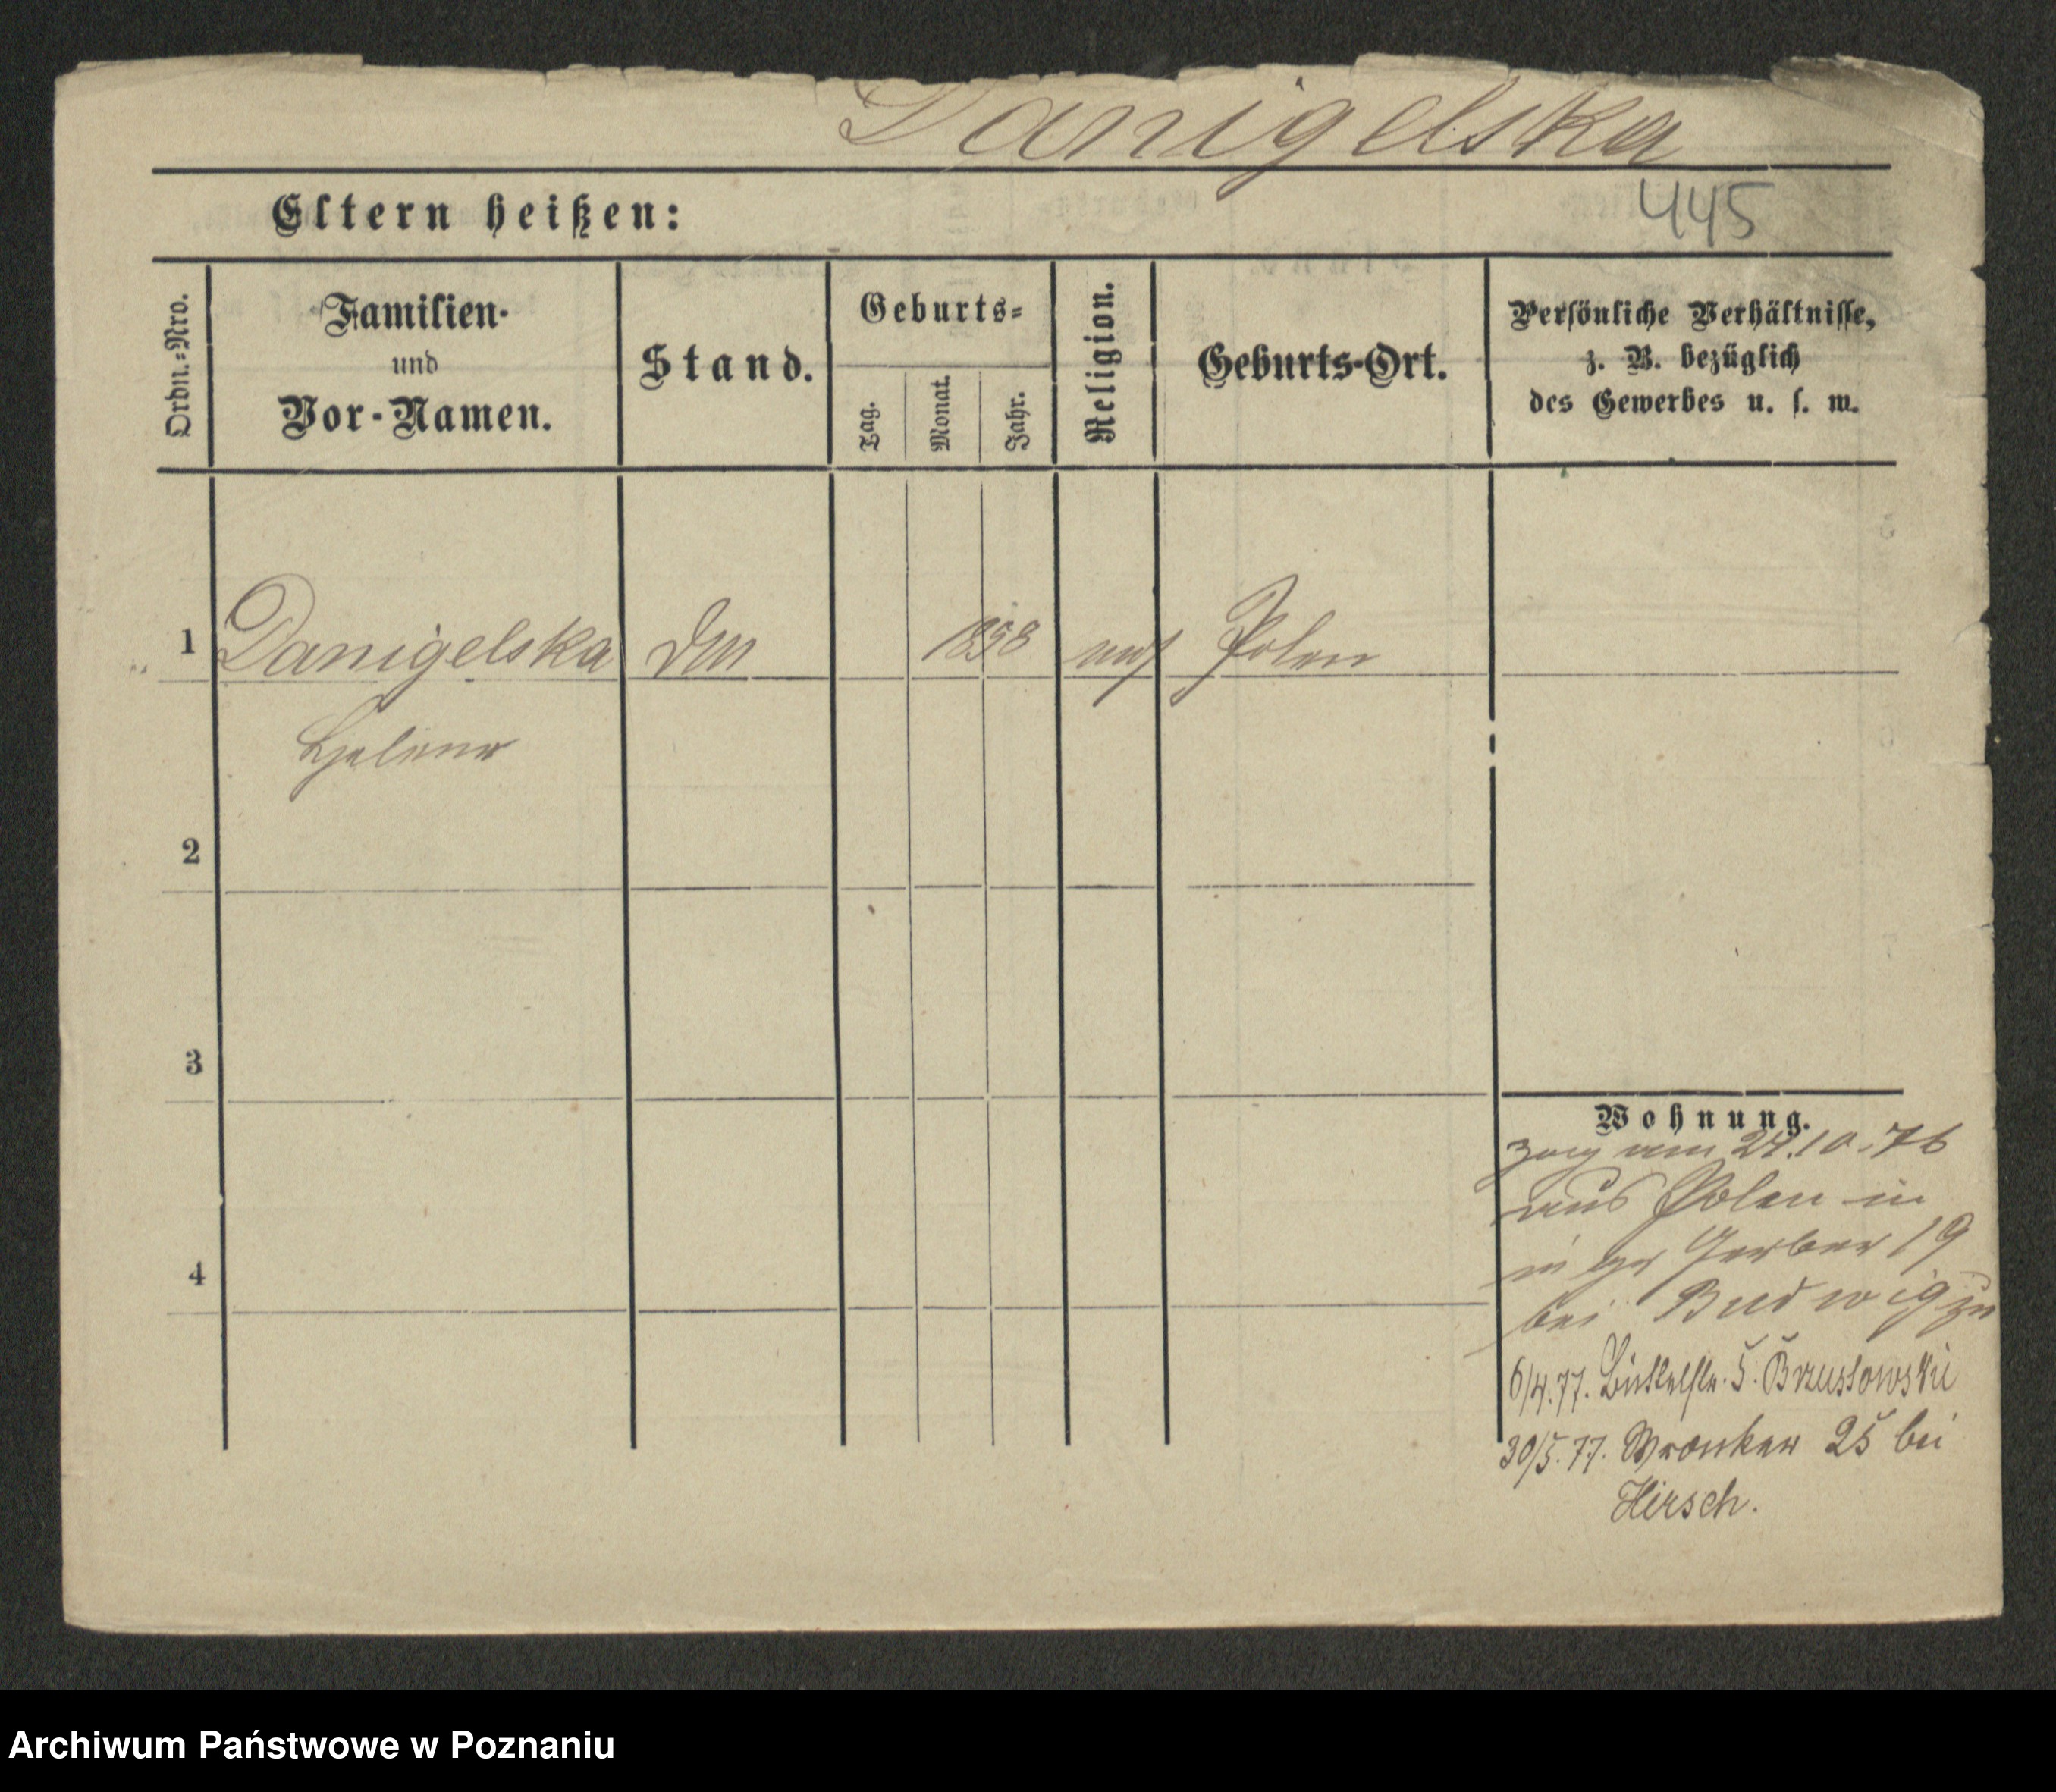 Danigelska
445
Eltern heißen:
Ordn.-Nro.
Familien-
und
Vor-Namen.
Stand.
Geburts-
Tag.
Monat.
Jahr.
Religion.
Geburts-Ort.
Persönliche Verhältnisse,
z. B. bezüglich
des Gewerbes u. s. w.
1 Danigelska 1858 Polen
Helene
2
3
4
Wohnung.
zog am 24.10.76
aus Polen in
in gr Gerber 19
bei
6/4.77. Büttelstr. 5. Brussowski
30/5.77. Wronker 25 bei
Hirsch.
Archiwum Państwowe w Poznaniu